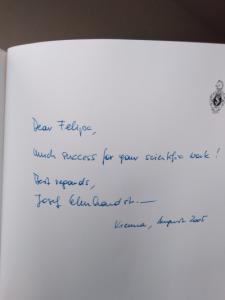 Dear Felipe,
much success for your scientific work!
Best regards,
Josef
Vienna, August 2005